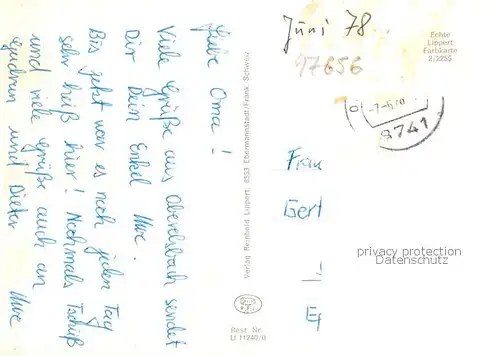 Liebe Oma!
Viele Grüße aus Oberelsbach sendet
Dir Dein Enkel Uwe.
Bis jetzt war es noch jeden Tag
sehr heiß hier! Nochmals Tschüß
und viele Grüße auch an
Gudrun und Dieter Uwe
Verlag Reinhold Lippert, 8553 Ebermannstadt/Fränk. Schweiz
Best. Nr.
Juni 78
97656
Echte
Lippert
Farbkarte
2/2255
8741
Frau
Gert
privacy protection
Datenschutz